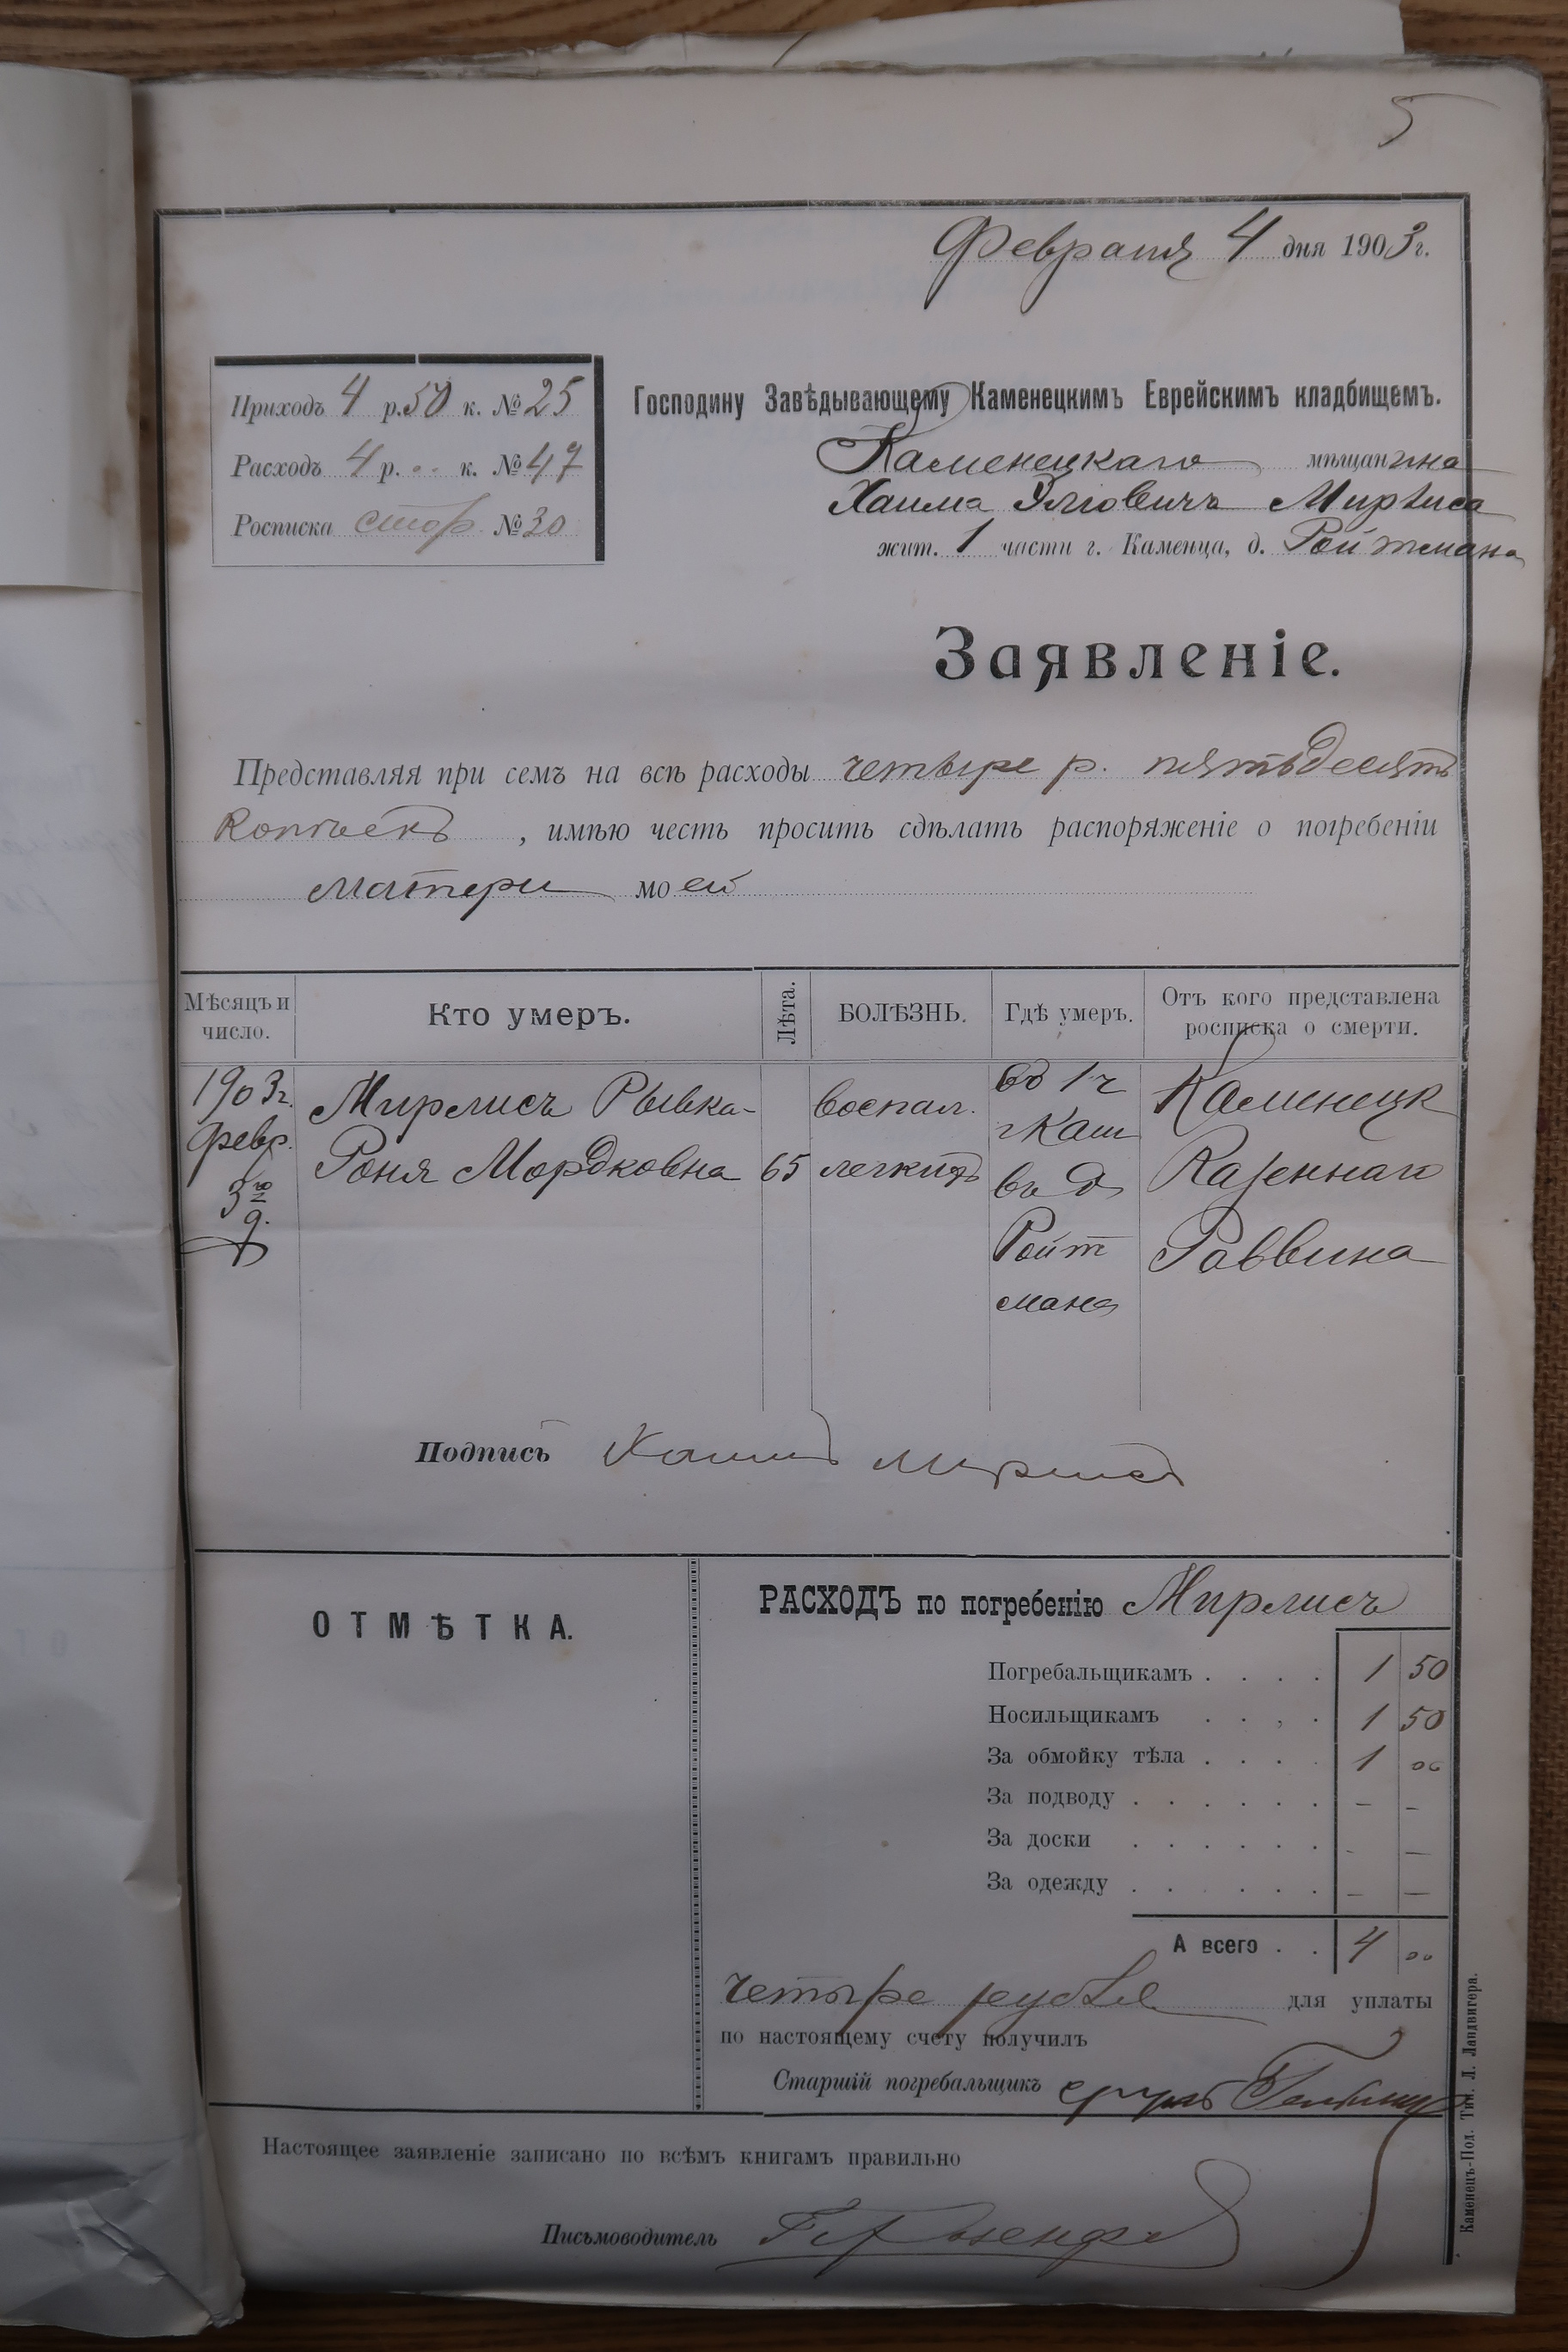 5
Февраля 4 дня 1903 г.
Приходъ 4 р. 50 к. № 25
Расходъ 4 р. .. к. № 47
Росписка стор № 30
Господину Завѣдывающему Каменецкимъ Еврейскимъ кладбищемъ.
Каменецкаго мѣщанина
Хаима Мирлиса
жит. 1 части г. Каменца, д. Ройтмана
Заявленіе.
Представляя при семъ на всѣ расходы четыре р. пятьдесятъ
копѣекъ, имѣю честь просить сдѣлать распоряженіе о погребеніи
матери моей
Мѣсяцъ и число. Кто умеръ. Лѣта. БОЛѢЗНЬ. Гдѣ умеръ. Отъ кого представлена росписка о смерти.
1903 г. Мирлисъ Рывка- воспал. 1 ч Каменецк
февр. Роня Мордковна 65 легкихъ г Кам Казеннаго
3го въ д Раввина
д. Ройт
мана
Подпись Хаимъ Мирлисъ
ОТМѢТКА.
РАСХОДЪ по погребенію Мирлисъ
Погребальщикамъ . . . . 1 50
Носильщикамъ . . . . 1 50
За обмойку тѣла . . . . 1 00
За подводу . . . . . . – –
За доски . . . . . . - –
За одежду . . . . . . – –
А всего . . 4 00
четыре рубле для уплаты
по настоящему счету получилъ
Старшій погребальщикъ
Настоящее заявленіе записано по всѣмъ книгамъ правильно
Письмоводитель
Каменецъ-Под. Тип. Л. Ландвигера.